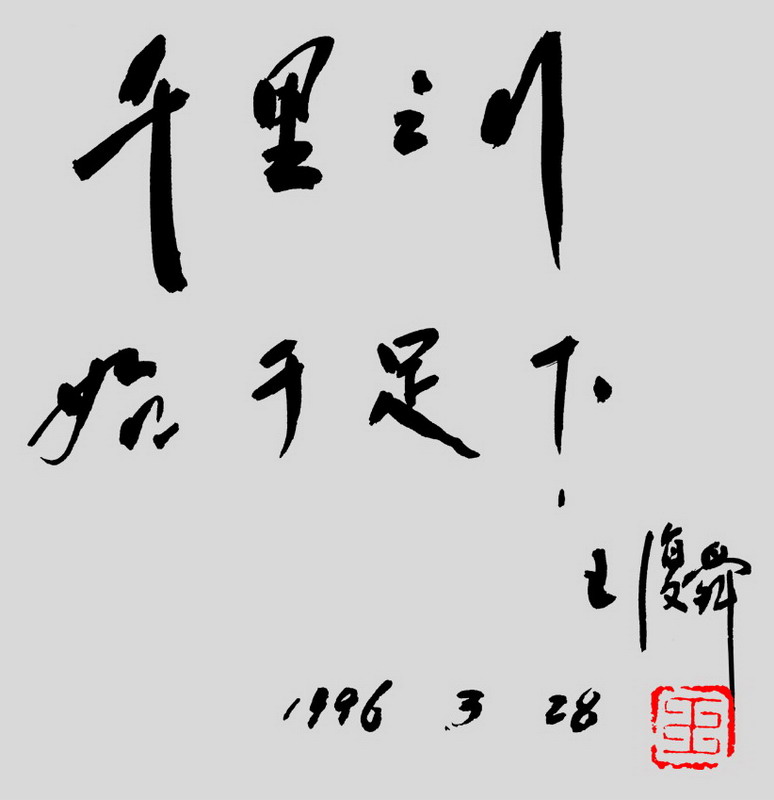 千里之行
始于足下.
王復舜
1996 3 28